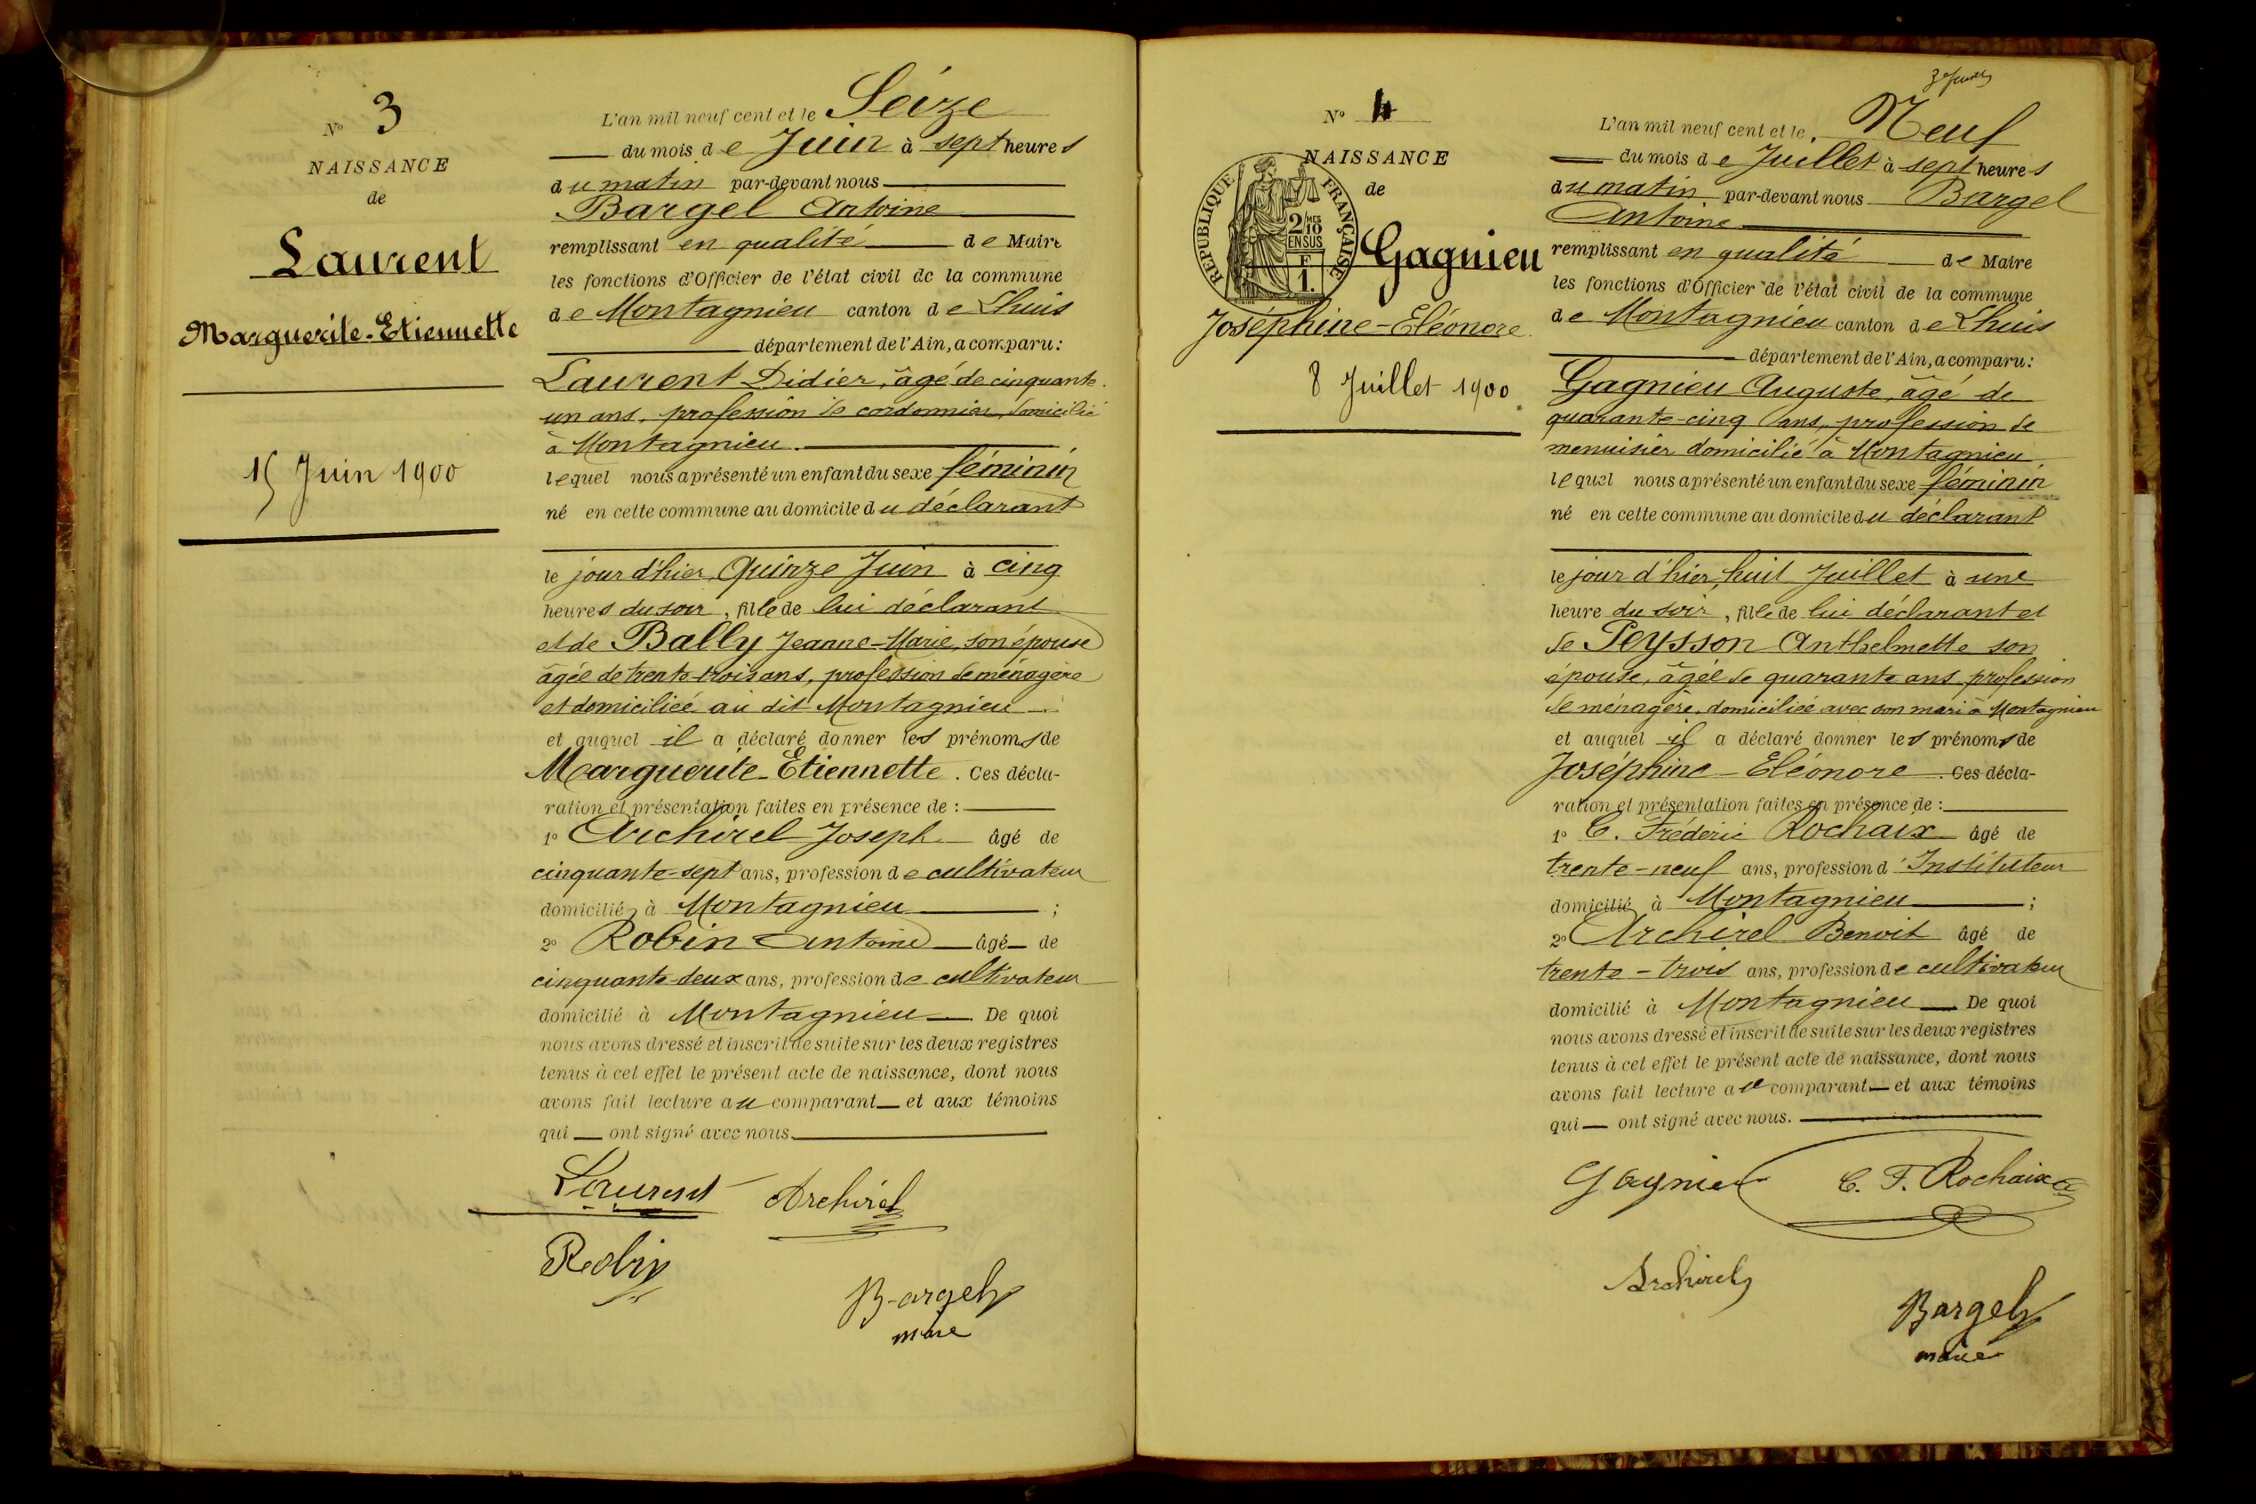 N° 3
NAISSANCE
de
Laurent
Marguerite-Etiennette
15 Juin 1900
L'an mil neuf cent et le Seize
du mois de Juin à sept heures
du matin par-devant nous
Bargel Antoine
remplissant en qualité de Maire
les fonctions d'Officier de l'état civil de la commune
de Montagnieu canton de Lhuis
département de l'Ain, a comparu :
Laurent Didier, âgé de cinquante-
un ans, profession de cordonnier, domicilié
à Montagnieu.
lequel nous a présenté un enfant du sexe féminin
né en cette commune au domicile du déclarant
le jour d'hier, Quinze Juin à cinq
heures du soir, fille de lui déclarant
et de Bally Jeanne-Marie, son épouse
âgée de trente-trois ans, profession de ménagère
et domiciliée au dit Montagnieu
et auquel il a déclaré donner les prénoms de
Marguerite-Etiennette. Ces décla-
ration et présentation faites en présence de :
1° Archirel Joseph âgé de
cinquante-sept ans, profession de cultivateur
domicilié à Montagnieu ;
2° Robin Antoine âgé de
cinquante-deux ans, profession de cultivateur
domicilié à Montagnieu. De quoi
nous avons dressé et inscrit de suite sur les deux registres
tenus à cet effet le présent acte de naissance, dont nous
avons fait lecture au comparant et aux témoins
qui ont signé avec nous.
Laurent Archirel
Robin
Bargel
maire
N° 4
NAISSANCE
de
REPUBLIQUE FRANÇAISE
2/10 MES
EN SUS
F
1.
Gagnieu
Joséphine-Eléonore
8 Juillet 1900
L'an mil neuf cent et le Neuf
du mois de Juillet à sept heures
du matin par-devant nous Bargel
Antoine
remplissant en qualité de Maire
les fonctions d'Officier de l'état civil de la commune
de Montagnieu canton de Lhuis
département de l'Ain, a comparu :
Gagnieu Auguste, âgé de
quarante-cinq ans, profession de
menuisier domicilié à Montagnieu
lequel nous a présenté un enfant du sexe féminin
né en cette commune au domicile du déclarant
le jour d'hier, huit Juillet à une
heure du soir, fille de lui déclarant et
de Peysson Anthelmette son
épouse, âgée de quarante ans profession
de ménagère, domiciliée avec son mari à Montagnieu
et auquel il a déclaré donner les prénoms de
Joséphine-Eléonore. Ces décla-
ration et présentation faites en présence de :
1° C. Fréderic Rochaix âgé de
trente-neuf ans, profession d'Instituteur
domicilié à Montagnieu ;
2° Archirel Benoit âgé de
trente-trois ans, profession de cultivateur
domicilié à Montagnieu De quoi
nous avons dressé et inscrit de suite sur les deux registres
tenus à cet effet le présent acte de naissance, dont nous
avons fait lecture au comparant et aux témoins
qui ont signé avec nous.
Gagnieu C. F. Rochaix
Archirel
Bargel
maire